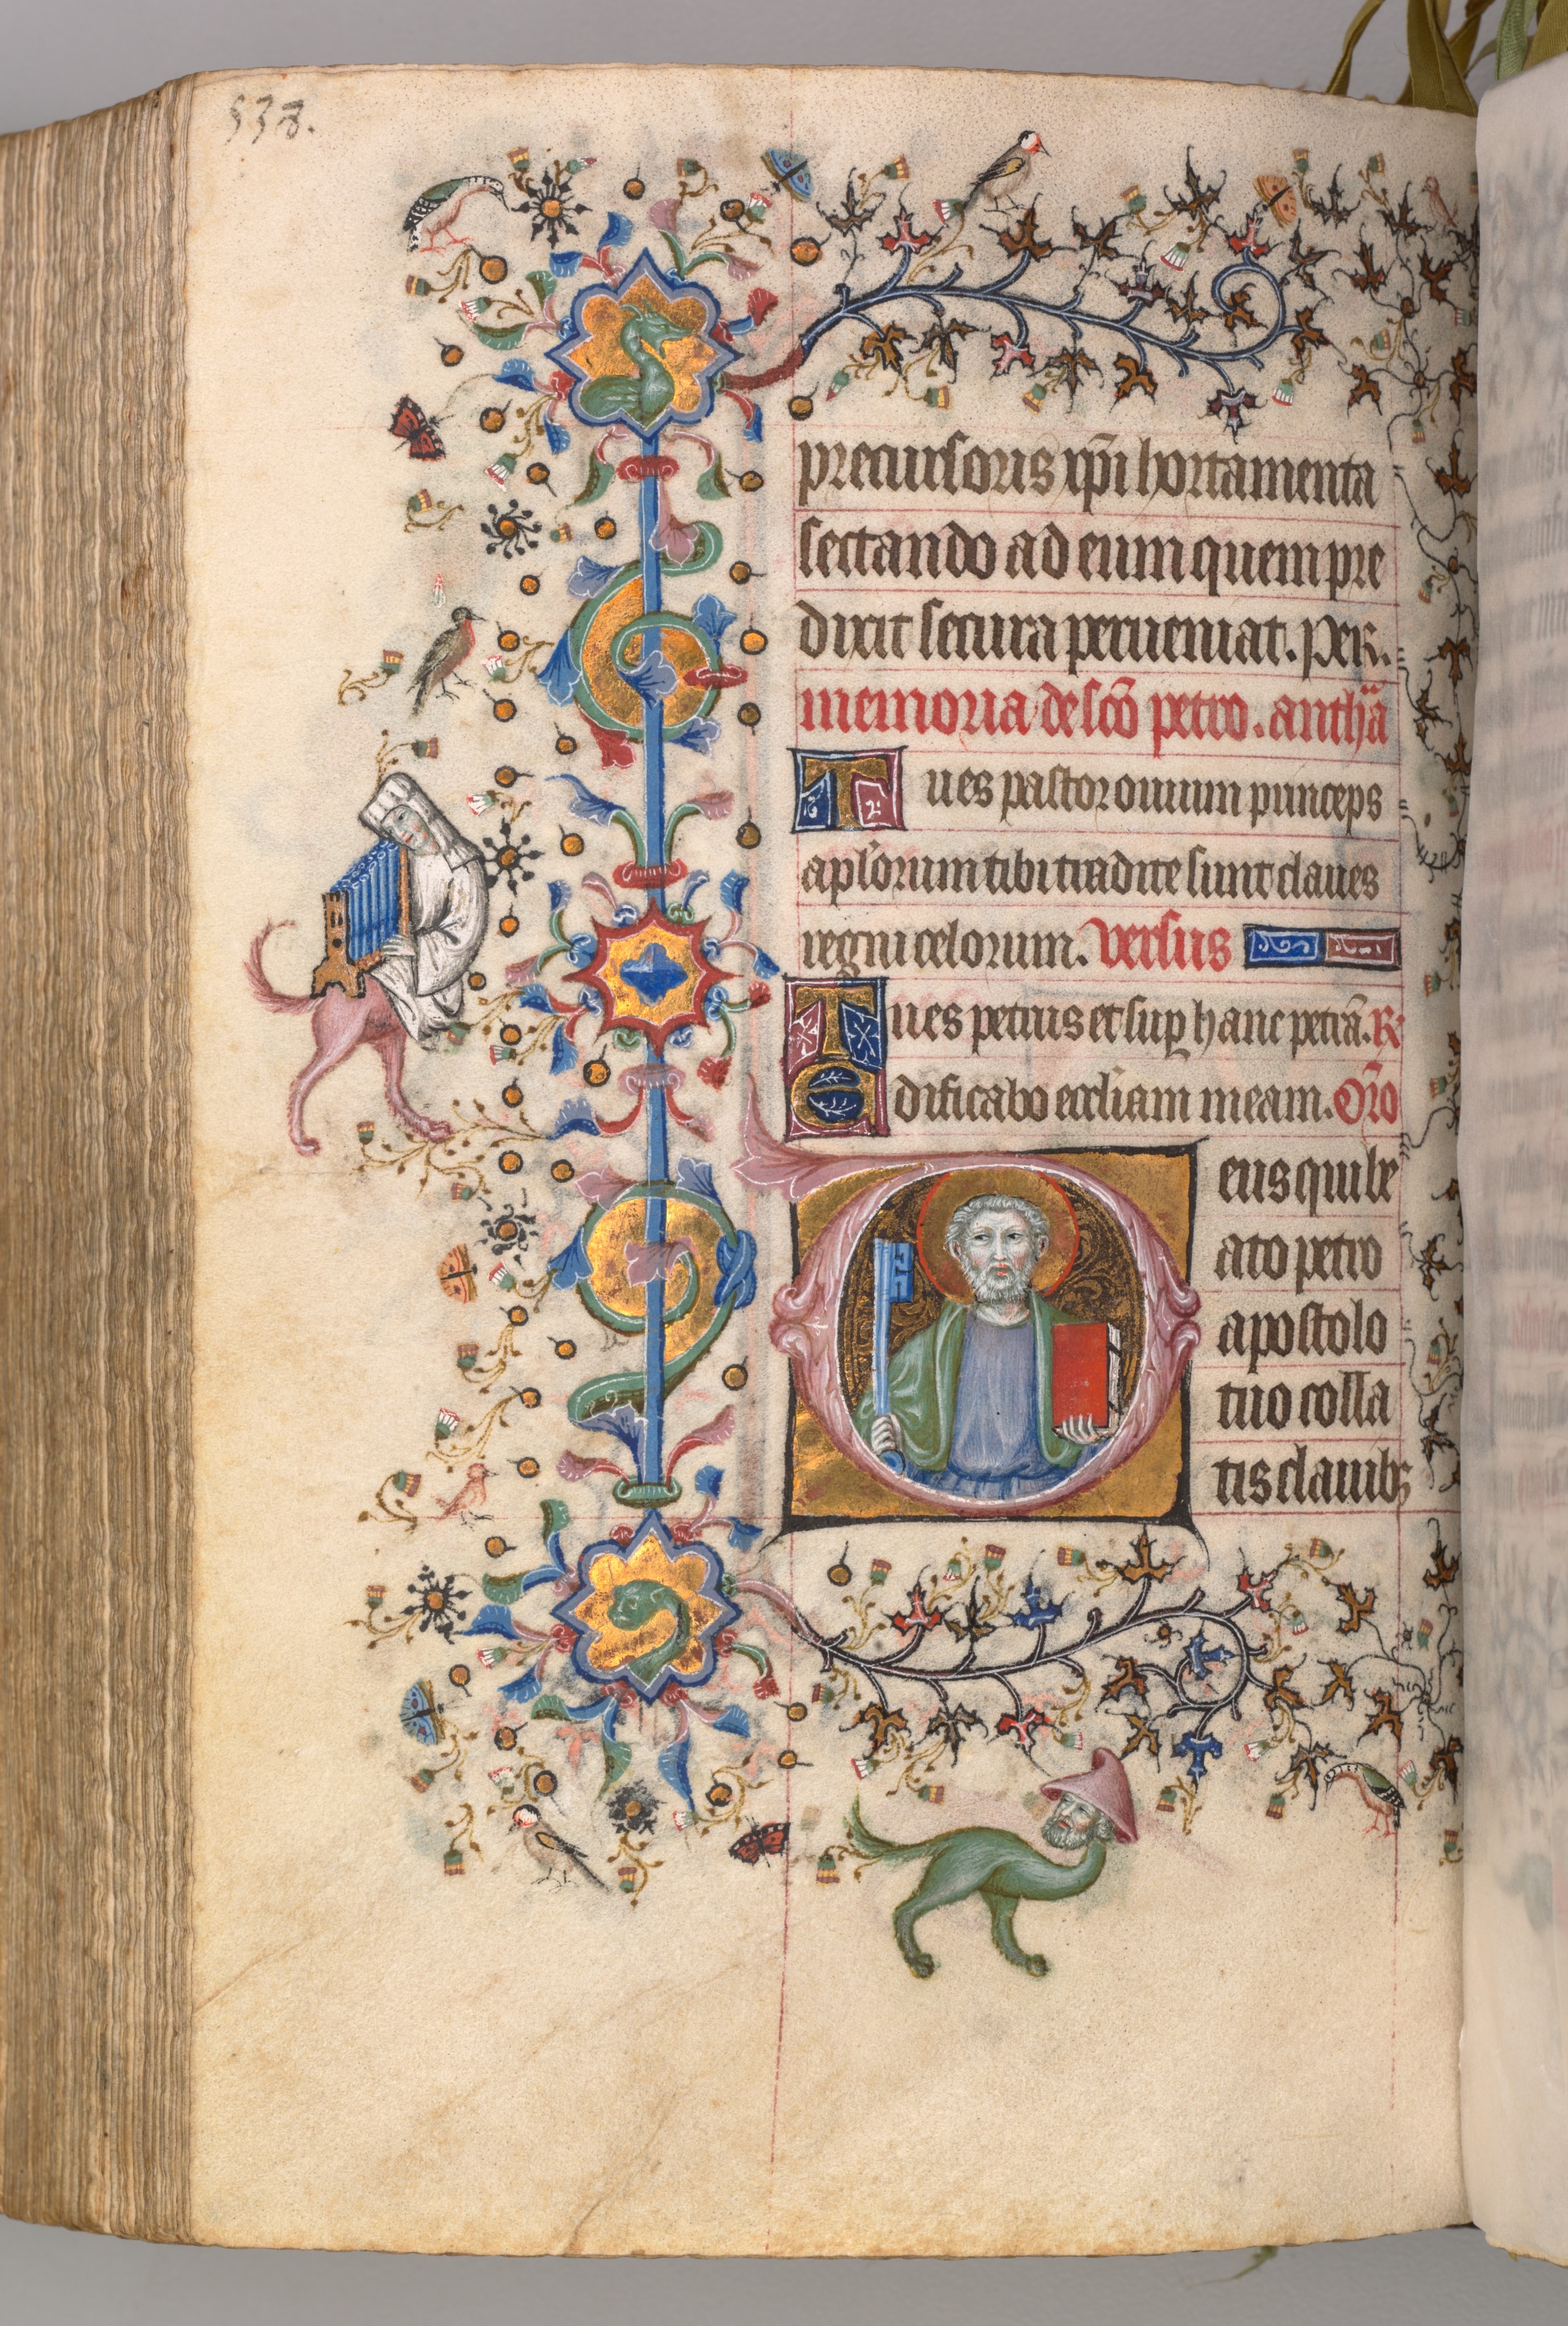 538.
precursoris xp̄i hortamenta
sectando ad eum quem pre
dixit secura perueniat. Per.
memoria de sc̄o petro. anthā
Tu es pastor ouium princeps
apl'orum tibi tradite sunt claues
regni celorum. Versus
Tu es petrus et sup hanc petrā. R
Edificabo eccl'iam meam. Or̄o
Deus qui be
ato petro
apostolo
tuo colla
tis clauibꝫ